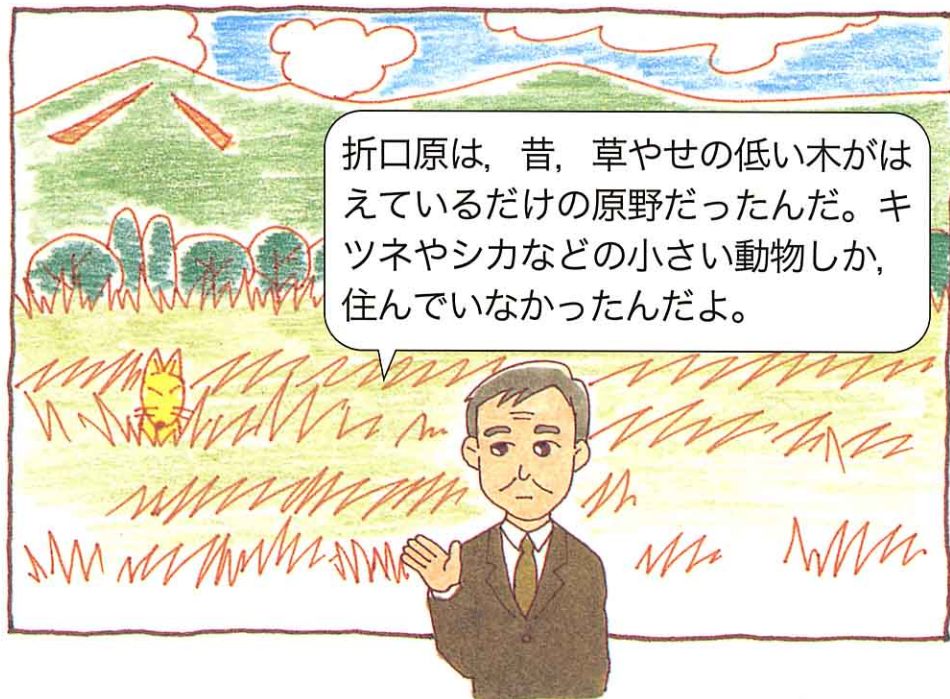 折口原は，昔，草やせの低い木がは
えているだけの原野だったんだ。キ
ツネやシカなどの小さい動物しか，
住んでいなかったんだよ。